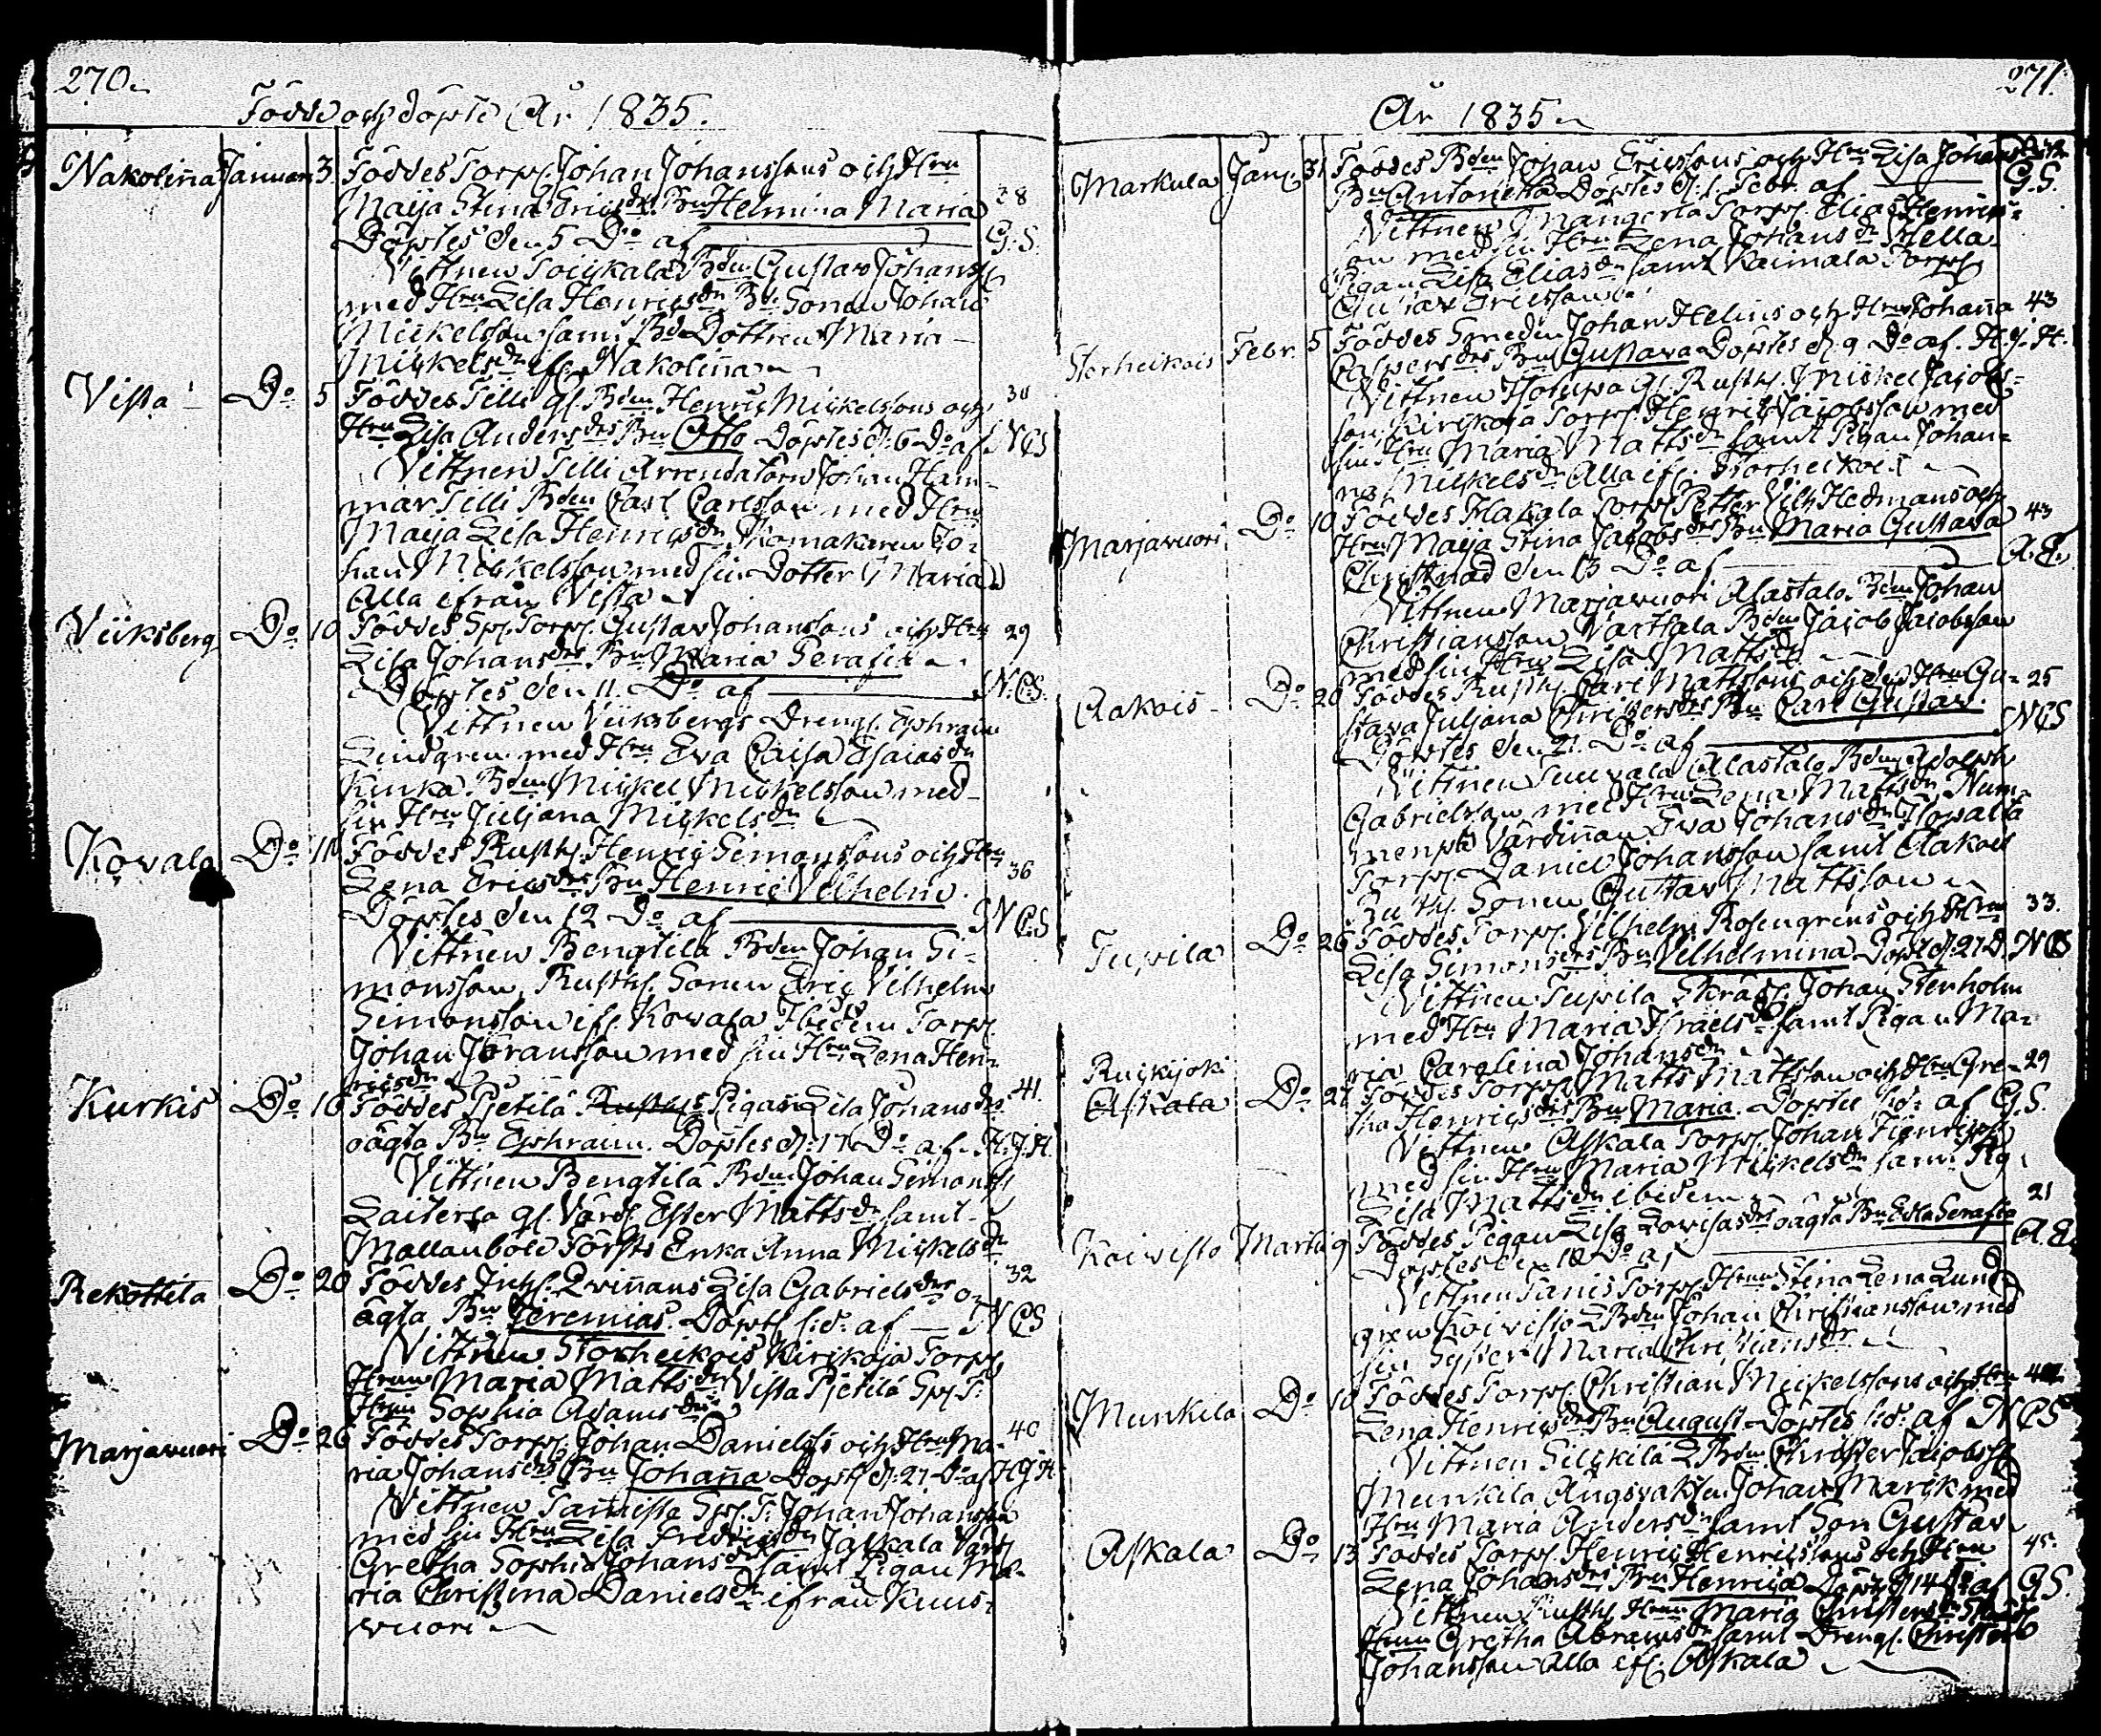 270.
Födde och döpte År 1835.
Nakolina Januari 3. Föddes Torp. Johan Johanssons och Hru
Maija Stina Ericsdrs Bn Helmina Maria 28
Döptes den 5 Do af G.S.
Vittnen Bden Gustav Johanss
med Hru Lisa Henricsdr Bd. Sonen Johan
Mickelsson samt Bd Dottren Maria
Mickelsdr ifr. Nakolina
Vista Do 5 Föddes Tilli gl. Bden Henric Mickelssons och 30
Hru Lisa Andersdrs Bn Otto Döptes d. 6 Do af NCS
Vittnen Tilli Arrendatorn Johan Ham-
mar Tilli Bden Carl Carlsson med Hru
Maija Lisa Henricsdr Skomakaren Jo-
han Mickelsson med sin Dotter Maria
Alla ifrån Vista
Viiksberg Do 10 Föddes Sp. Torp. Gustav Johanssons och Hru 29
Lisa Johansdrs Bn Maria Serafia
Döptes den 11. Do af N.C.S.
Vittnen Viiksbergs Dreng. Ephraim
Lindgren med Hru Eva Caisa Esaiasdr
Kinka Bden Mickel Mickelsson med
sin Hru Juljana Mickelsdr
Kovala Do 11 Föddes Rusth. Henric Simonssons och Hru
Lena Ericsdrs Bn Henric Vilhelm 36
Döptes den 12 Do af NCS
Vittnen Bengtilä Bden Johan Si-
monsson, Rusth. Sonen Eric Vilhelm
Simonsson ifr. Kovala Ibidem Torp.
Johan Göransson med sin Hru Lena Hen-
ricsdr
Kurkis Do 16 Föddes Pjetilä Pigan Lisa Johansdrs 41.
oägta Bn Ephraim. Döptes d. 17 Do af H.J.H.
Vittnen Bengtilä Bden Johan Simonss
Laiterla gl. Värd. Ester Mattsdr samt
Mallanböle Enka Anna Mickelsdr
Rekottila Do 20 Föddes Inh. Qvinnans Lisa Gabrielsdrs o- 32
ägta Bn Jeremias. Döpt s.d. af NCS
Vittnen Storheikois Kirikoja Torp.
Hrun Maria Mattsdr Vista Pjetilä Sp. T.
Hrun Sophia Adamsdr
Marjavuori Do 26 Föddes Torp. Johan Danielss och Hru Ma- 40
ria Johansdrs Bn Johanna Döpt d. 27 Do af HJH
Vittnen Tamista Sp. T. Johan Johansson
med sin Hru Lisa Fredricsdr Jalkala Värd.
Gretha Sophia Johansdr samt Pigan Ma-
ria Christina Danielsdr ifrån Kuus-
vuori
271.
År 1835
Markula Janu. 31 Föddes Bden Johan Ericssons och Hru Lisa Johansdrs
Bn Antonetta Döptes d. 1. Febr. af G.S.
Vittnen Torp. Elias Henrics-
on med sin Hru Lena Johansdr
Pigan Lisa Eliasdr samt Raimala Torp.
Gustav Ericsson
Storheikois Febr. 5 Föddes Smeden Johan Helins och Hru Johanna 43
Caspersdrs Bn Gustava Döptes d. 9 Do af H.J.H.
Vittnen gl. Rusth. Mickel Jacobs-
son Kirikoja Torp. Henric Jacobsson med
sin Hru Maria Mattsdr samt Pigan Johan-
na Mickelsdr Alla ifr. Storheikois
Marjavuori Do 10 Föddes Hakala Torp. Petter Vilh Hedmans och
Hru Maija Stina Jacobsdrs Bn Maria Gustava 43
Christnad den 13 Do af A.E.
Vittnen Marjavuori Alastalo Bden Johan
Christiansson Vartsala Bden Jacob Jacobsson
med sin Hru Lisa Mattsdr
Aakois Do 20 Föddes Rusth. Carl Mattssons och dess Hru Gu- 25
stava Juljana Christersdrs Bn Carl Gustav. NCS
Döptes den 21. Do af
Vittnen Alastalo Bden Adolph
Gabrielsson med Hru Lena Mattsdr Num-
menpä Värdinnan Eva Johansdr
Torp. Daniel Johansson samt Aakois
Rusth. Sonen Gustav Mattsson
Tupila Do 26 Föddes Torp. Vilhelm Rosengrens och Hru 33.
Lisa Simonsdrs Bn Vilhelmina Döpt d. 27 D. NCS
Vittnen Tupila Skräd. Johan Stenholm
med Hru Maria Israelsdr samt Pigan Ma-
ria Carolina Johansdr
Ruckijoki
Askala Do 27 Föddes Torp. Matts Mattsson och Hru Gre- 29
tha Henricsdrs Bn Maria. Döptes s.d. af G.S.
Vittnen Askala Torp. Johan Henricss
med sin Hru Maria Mickelsdr samt Pig.
Lisa Mattsdr ibidem
Koivisto Martii 9 Föddes Pigan Lisa Lovisasdrs oägta Bn Edla Serafia 21
Döptes den 10 Do af A.E.
Vittnen Tanis Torp. Hrun Stina Lena Lund-
gren Koivisto Bden Johan Christiansson med
sin Syster Maria Christiansdr
Munkila Do 10 Föddes Torp. Christian Mickelssons och Hru
Lena Henricsdrs Bn August Döptes s.d. af NCS
Vittnen Silckilä Bden Christer Jacobss
Munkila Ängsvakt. Johan Marck med
Hru Maria Andersdr samt Son Gustav
Askala Do 13 Föddes Torp. Henric Henricssons och Hru 45.
Lena Johansdrs Bn Henrica Döpt d. 14 Do af GS.
Vittnen Rusth. Hrun Maria Christersdr
Hrun Gretha Abramsdr samt Dreng. Christer
Johansson Alla ifr. Askala